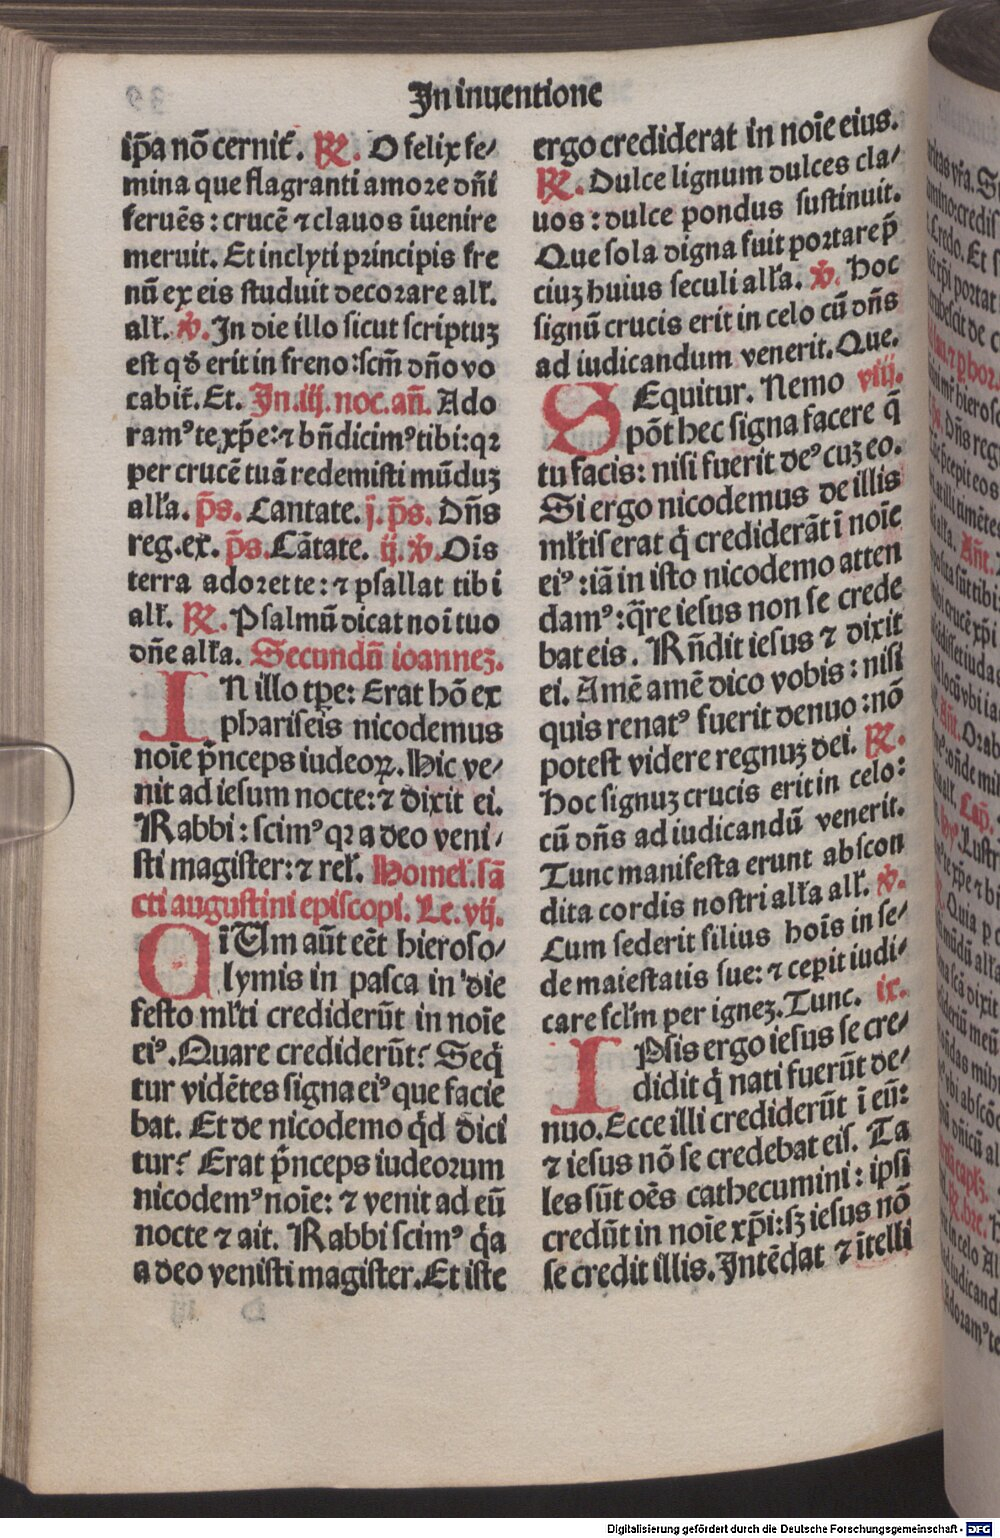 In inuentione
ip̄a nō cernit̄. ℟. O felix fe/
mina que flagranti amore dn̄i
feruēs : crucē ⁊ clauos īuenire
meruit. Et inclyti principis fre
nū ex eis studuit decorare alľ.
alľ. ℣. In die illo sicut scriptuꝫ
est qd̄ erit in freno : scm̄ dn̄o vo
cabit̄. Et. In .iij. noc. an̄. Ado
ramꝰ te xp̄e: ⁊ bn̄dicimꝰ tibi: qꝛ
per crucē tuā redemisti mūduꝫ
alľa. p̄s. Cantate. j. p̄s. Dn̄s
reg. ex. p̄s. Cātate. ij. ℣. Oīs
terra adoret te: ⁊ psallat tibi
alľ. ℟. Psalmū dicat noī tuo
dn̄e alľa. Secundū ioanneꝫ.
IN illo tp̄e: Erat hō ex
phariseis nicodemus
noīe p̄nceps iudeoꝝ. Hic ve/
nit ad iesum nocte: ⁊ dixit ei.
Rabbi : scimꝰ qꝛ a deo veni/
sti magister: ⁊ reľ. Homel. sā
cti augustini episcopi. Le. vij.
CUm aūt eēt hieroso/
lymis in pasca in die
festo mľti crediderūt in noīe
eiꝰ. Quare crediderūt? Seq̄
tur vidētes signa eiꝰ que facie
bat. Et de nicodemo qd̄ dici
tur? Erat p̄nceps iudeorum
nicodemꝰ noīe: ⁊ venit ad eū
nocte ⁊ ait. Rabbi scimꝰ q̄a
a deo venisti magister. Et iste
ergo crediderat in noīe eius.
℟. Dulce lignum dulces cla/
uos : dulce pondus sustinuit.
Que sola digna fuit portare p̄
ciuꝫ huius seculi alľa. ℣. Hoc
signū crucis erit in celo cū dn̄s
ad iudicandum venerit. Que.
SEquitur. Nemo viij.
pōt hec signa facere q̄
tu facis: nisi fuerit deꝰ cuꝫ eo.
Si ergo nicodemus de illis
mľtis erat q̄ crediderāt ī noīe
eiꝰ : iā in isto nicodemo atten
damꝰ : q̄re iesus non se crede
bat eis. Rn̄dit iesus ⁊ dixit
ei. Amē amē dico vobis : nisi
quis renatꝰ fuerit denuo : nō
potest videre regnuꝫ dei. ℟.
Hoc signuꝫ crucis erit in celo:
cū dn̄s ad iudicandū venerit.
Tunc manifesta erunt abscon
dita cordis nostri alľa alľ. ℣.
Cum sederit filius hoīs in se/
de maiestatis sue: ⁊ ceperit iudi/
care scľm per igneꝫ. Tunc. ix.
IPsis ergo iesus se cre/
didit q̄ nati fuerūt de/
nuo. Ecce illi crediderūt ī eū:
⁊ iesus nō se credebat eis. Ta
les sūt oēs cathecumini : ipsi
credūt in noīe xp̄i: sꝫ iesus nō
se credit illis. Intēdat ⁊ ītelli
Digitalisierung gefördert durch die Deutsche Forschungsgemeinschaft - DFG